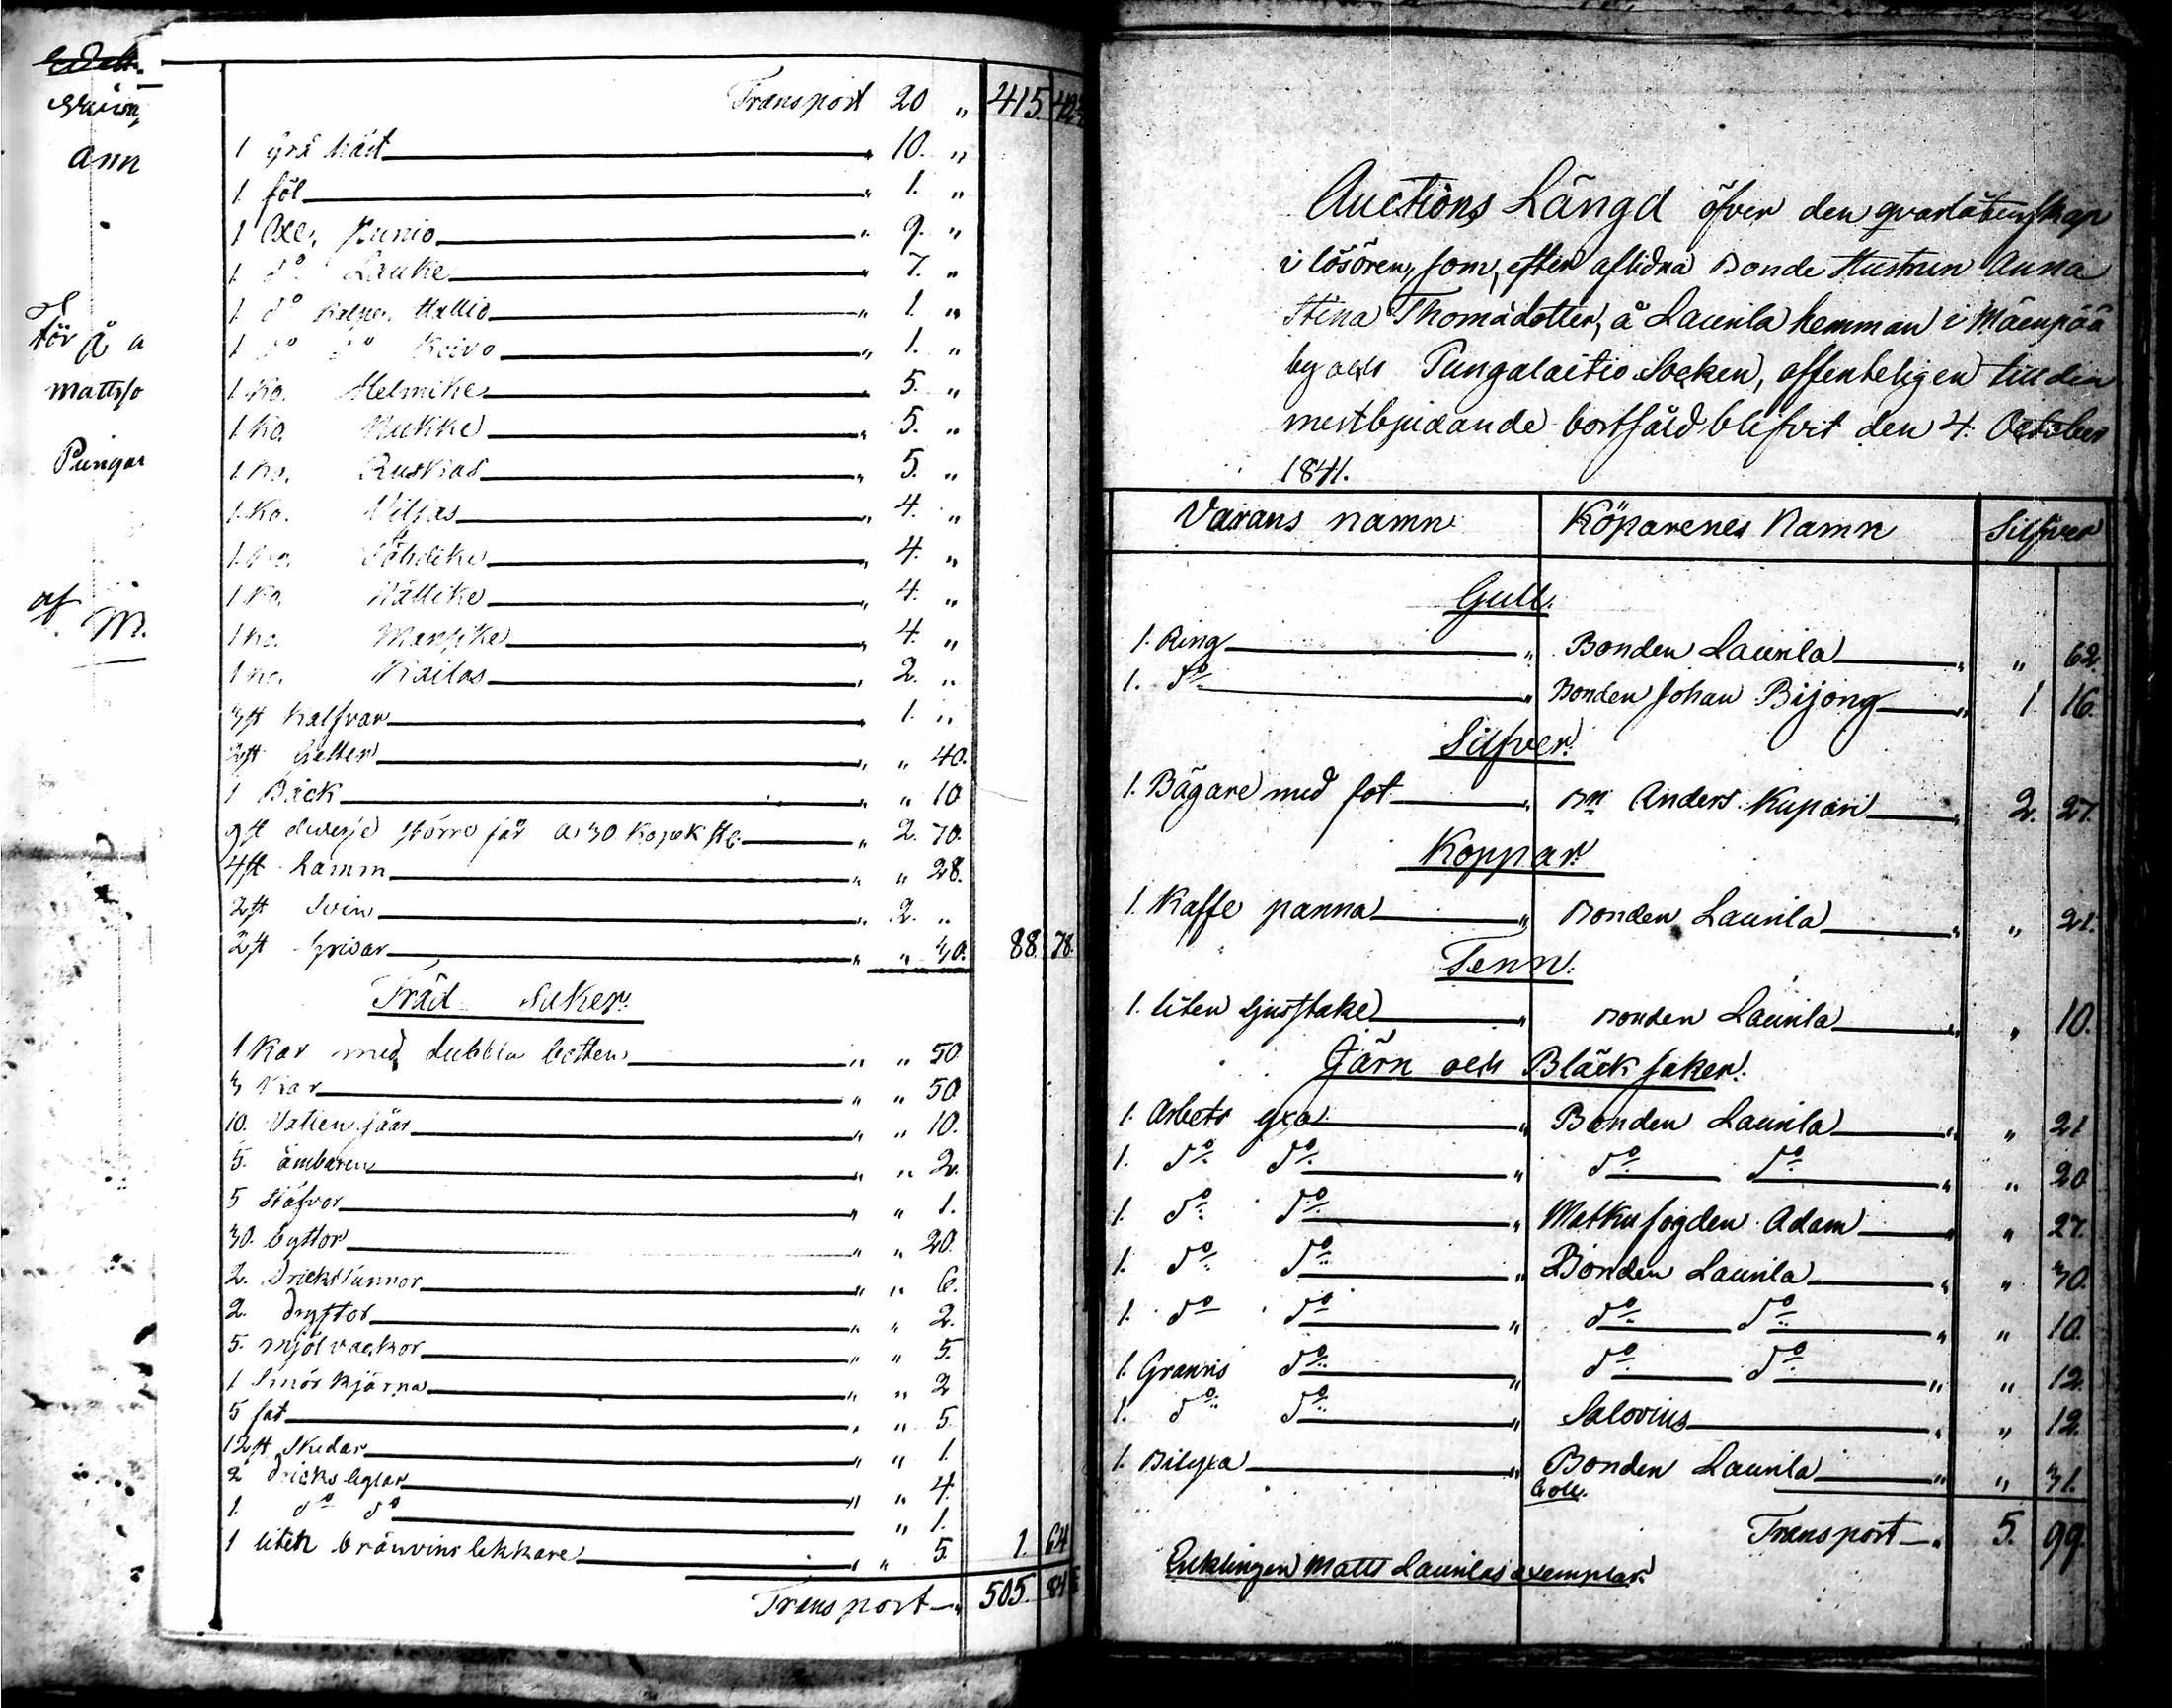 ann
för å a
mattsso
Pungar
af M.
Transport 20 „ 415. 
1 Grå häst „ 10. „
1 föl „ 1. „
1 Oxe, Junio „ 9. „
1. do Lauke „ 7. „
1 do Kalfve, Hallio „ 1. „
1 do do Koivo „ 1. „
1 Ko. Helmike „ 5. „
1. Ko. Mukke „ 5. „
1. Ko. Ruskas „ 5. „
1. Ko. Viljas „ 4. „
1. Ko. Tähdike „ 4. „
1. Ko. „ 4. „
1 Ko. Mansike „ 4. „
1 Ko. Kailas „ 2. „
3 st Kalfvar „ 1. „
2 st Getter „ „ 40.
1 Båck „ „ 10
9 st diverse större får a 30 Kopek st. „ 2. 70.
4 st Lamm „ „ 28.
2 st Svin „ 2. „
2 st Grisar „ „ 30. 88. 78.
Träd Saker.
1 Kar med dubbla botten „ „ 50
3 Kar „ „ 50
10. „ „ 10.
5. ämbaren „ „ 2.
5 Stäfvor „ „ 1.
30. byttor „ „ 20.
2. Drickstunnor „ „ 6.
2. Dryftor „ „ 2.
5. mjölvackor „ „ 5.
1 Smör kjärna „ „ 2
5 fat „ „ 5.
12 st Skedar „ „ 1.
2 Dricksbyttor „ „ 4.
1. do do „ 1.
1 liten bränvins lekkare „ „ 5. 1. 64
Transport „ 505. 84
Auctions Längd öfver den qvarlåtenskap
i lösören, som, efter aflidna Bonde Hustrun Anna
Stina Thomädotter, å Laurila hemman i Mäenpää
by och Pungalaitio Socken, offenteligen till den
mestbjudande bortsåld blifvit den 4. October
1841.
Varans namn Köparenes Namn Silfver
Gull.
1. Ring „ Bonden Laurila „ „ 62.
1. do „ Bonden Johan Bijong „ 1 16.
Silfver.
1. Bägare med fot „ Bn Anders Kupari „ 2. 27.
Koppar.
1. Kaffe panna „ Bonden Laurila „ „ 21.
Tenn.
1. liten ljusstake „ Bonden Laurila „ „ 10.
Järn och Bläck saker.
1. Arbets yxa „ Bonden Laurila „ „ 21
1. do do „ do do „ „ 20
1. do do „ Matkufogden Adam „ „ 27.
1. do do „ Bonden Laurila „ „ 30.
1. do do „ do do „ „ 10.
1. Granris do „ do do „ „ 12.
1. do do „ Salovius „ 12.
1. Bilyxa „ Bonden Laurila „ „ 31.
Coll.
Transport „ 5. 99.
Enklingen Matts Laurilas exemplar.